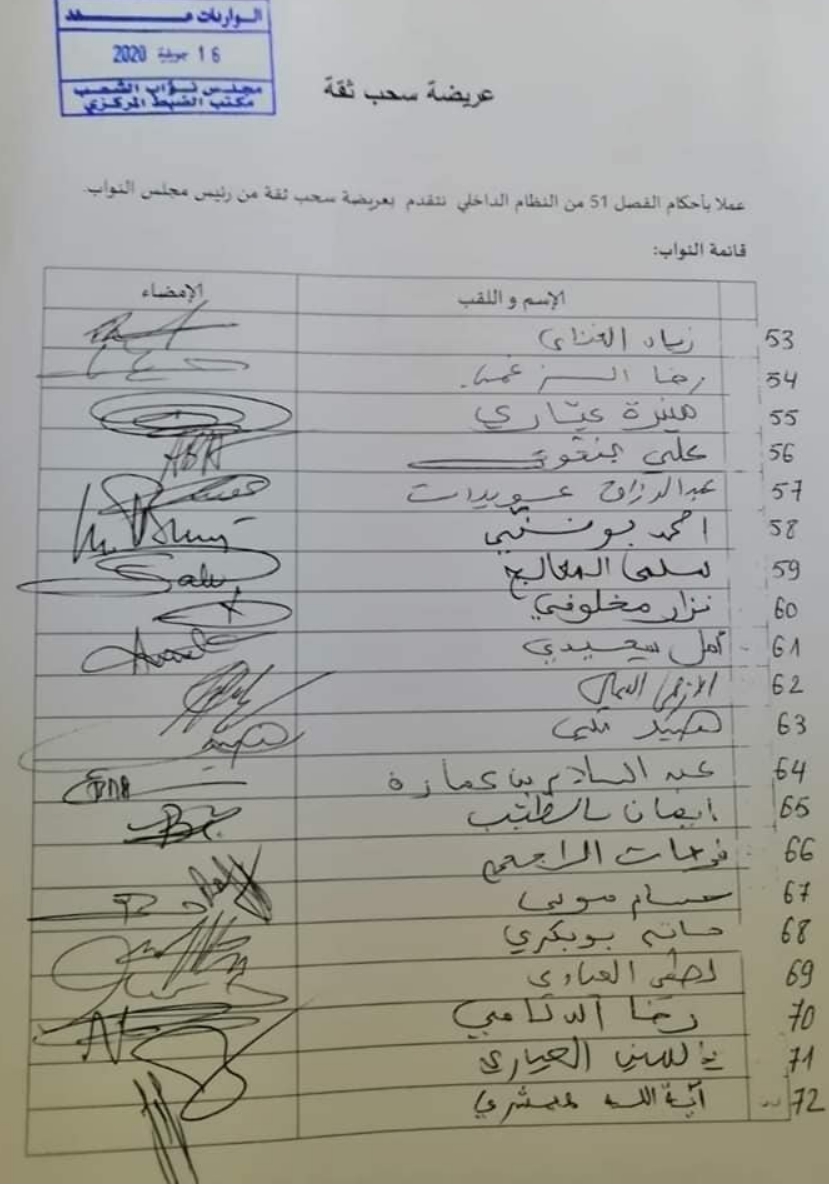 الواردات عـدد
16 جويلية 2020
مجلس نواب الشعب
مكتب الضبط المركزي
عريضة سحب ثقة
عملا بأحكام الفصل 51 من النظام الداخلي نتقدم بعريضة سحب ثقة من رئيس مجلس النواب.
قائمة النواب:
الإسم و اللقب الإمضاء
53 زياد
54 رضا
55 منيرة عياري
56 علي
57 عبد الرزاق عويدات
58 احمد
59 سلمى المعالج
60 نزار مخلوفي
61 أمل سعيدي
62
63
64 عبد السلام بن عمارة
65 ايمان بالطيب
66 فرحات الراجحي
67 حسام موسى
68 حاتم بوبكري
69 لطفي العيادي
70 رضا الدلاعي
71 العياري
72 آية الله هيشري